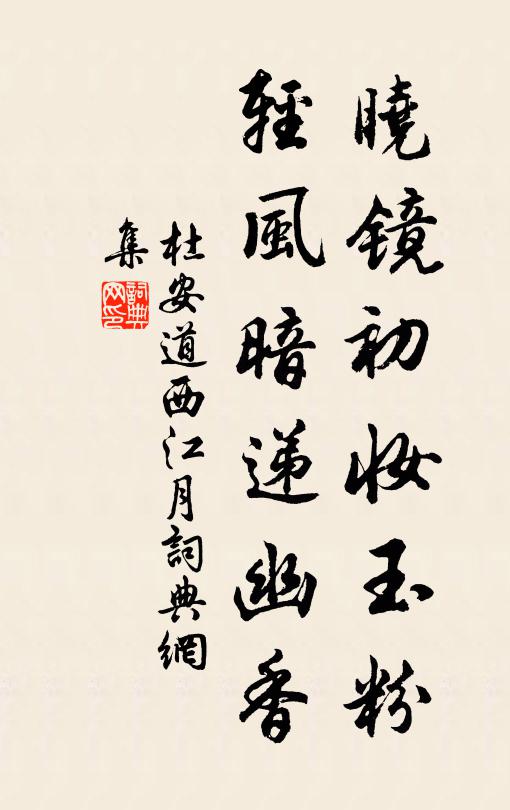 曉镜初妆玉粉
輕風暗递幽香
杜安道西江月詞典網
集
詞典網印